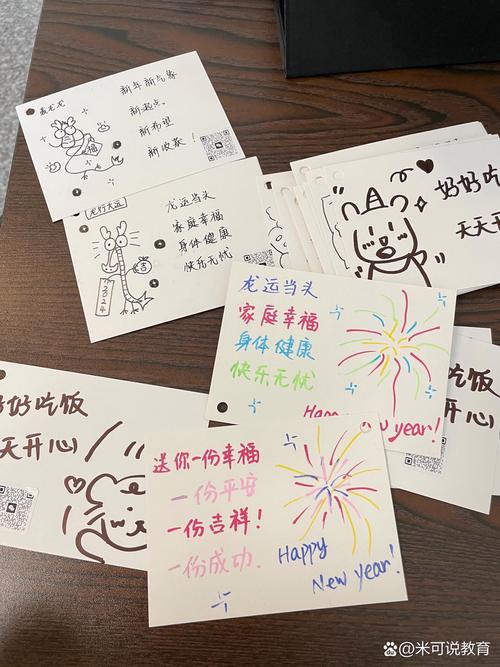 龙龙
新年新气象
新起点
新希望
新收获！
福
龙行大运
龙运当头
家庭幸福
身体健康
快乐无忧
吉
2024
好好吃
天天开
龙运当头
家庭幸福
身体健康
快乐无忧
Happy New year!
好好吃饭
天开心
吃饭
开心
送你一份幸福
一份平安
一份吉祥！
一份成功.
Happy
New year!
@米可说教育